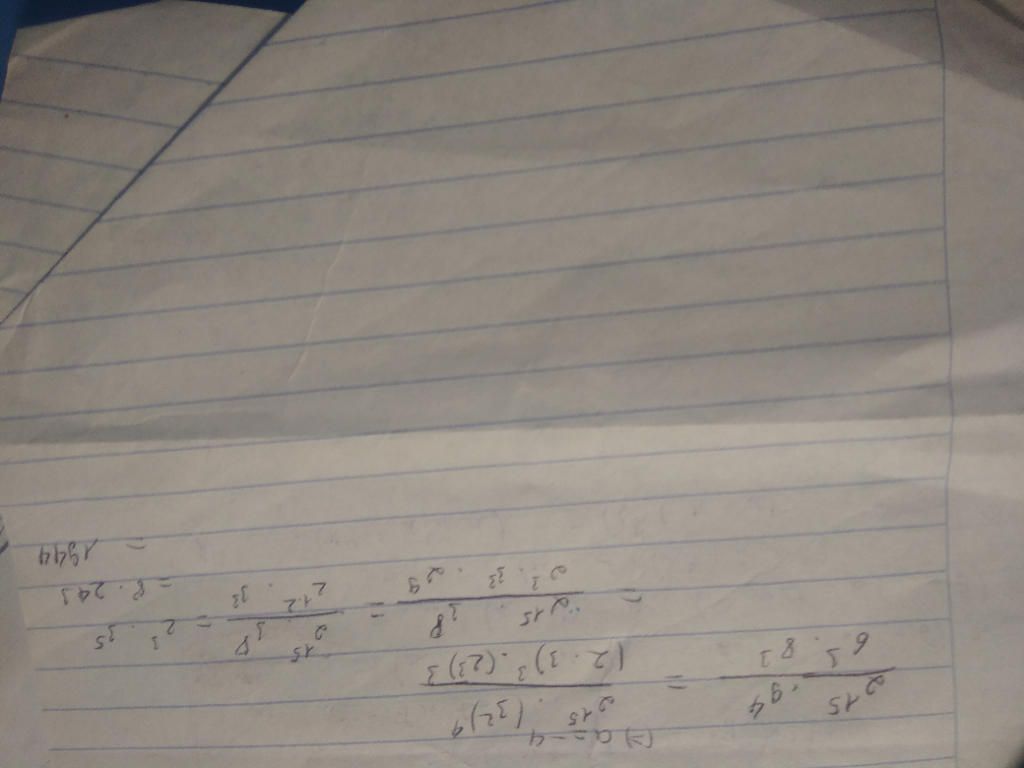 (=) a = -4
\frac{2^{15} \cdot 9^4}{6^3 \cdot 8^3} = \frac{2^{15} \cdot (3^2)^4}{(2 \cdot 3)^3 \cdot (2^3)^3}
= \frac{2^{15} \cdot 3^8}{2^3 \cdot 3^3 \cdot 2^9} = \frac{2^{15} \cdot 3^8}{2^{12} \cdot 3^3} = 2^3 \cdot 3^5
= 8 \cdot 243
= 1944